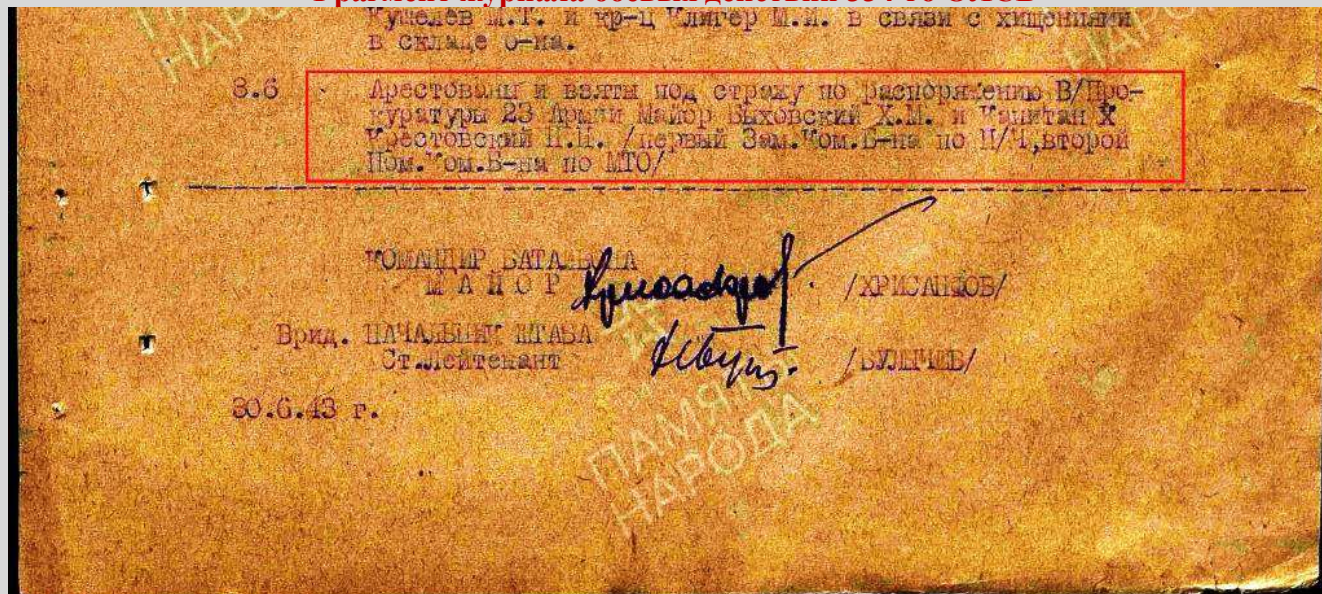 Кушелев М.Т. и кр-ц Клигер М.И. в связи с хищениями
в складе б-на.
8.6 Арестованы и взяты под стражу по распоряжению В/Про-
куратуры 23 Армии Майор Выховский Х.М. и Капитан
Крестовский П.П. /первый Зам.Ком.Б-на по П/Ч,второй
Пом.Ком.Б-на по МТО/
КОМАНДИР БАТАЛЬОНА
МАЙОР /ХРИСАНФОВ/
Врид. НАЧАЛЬНИК ШТАБА
Ст.Лейтенант /БУЛЫЧЕВ/
30.6.43 г.
ПАМЯТЬ
НАРОДА